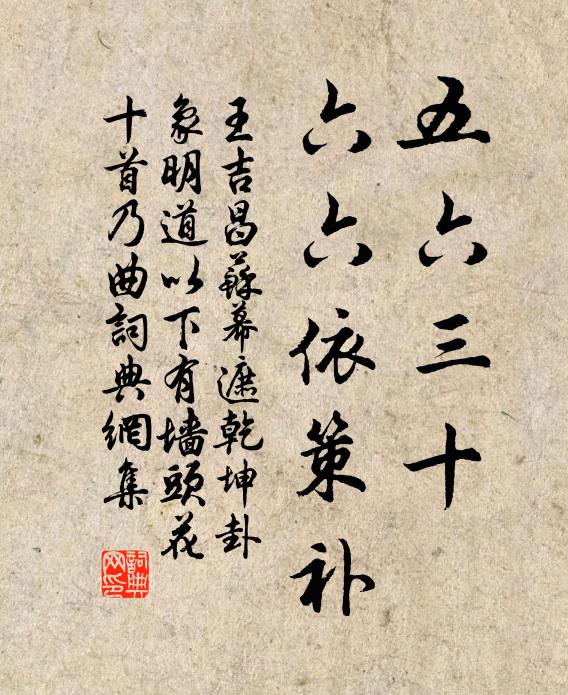 五六三十
六六依策补
王吉昌蘇幕遮乾坤卦
象明道以下有墙頭花
十首乃曲詞典網集
詞典
网印